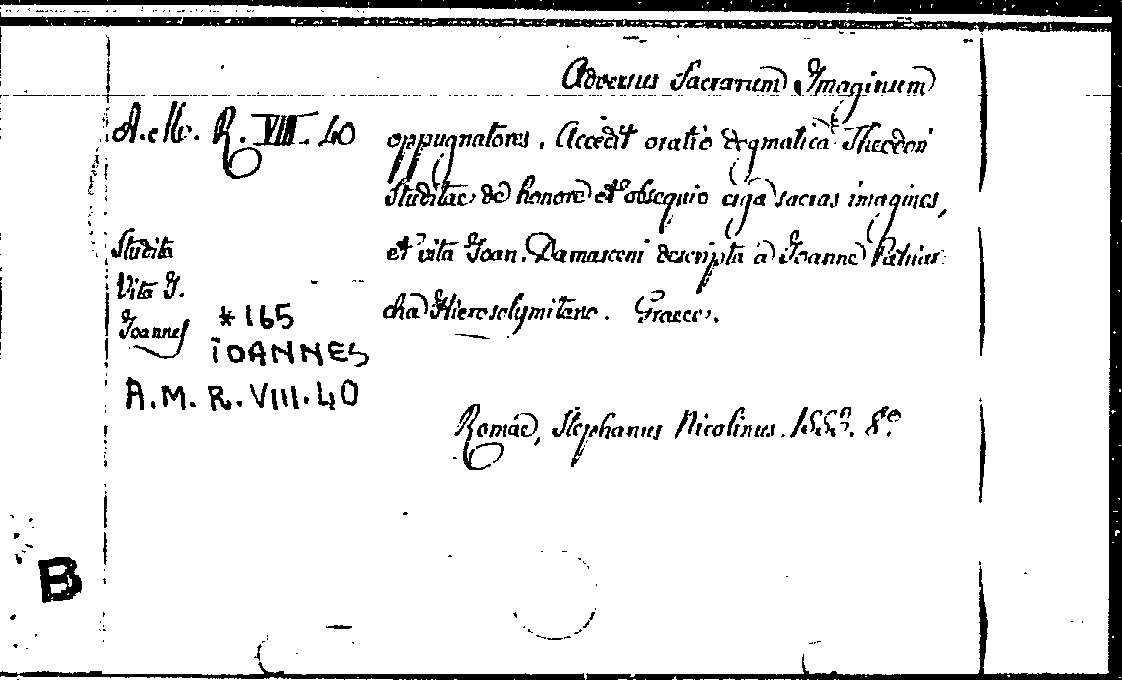 Adversus Sacrarum Imaginum
A. M. R. VIII. 40
oppugnatores. Accedit oratio dogmatica Theodori
Studitae de honore et obsequio erga sacras imagines,
et vita Joan. Damasceni descripta a Joanne Patriar-
cha Hierosolymitano. Graece.
Studita
Vita J.
Joannes
*165
IOANNES
A.M. R. VIII. 40
Romae, Stephanus Nicolinus. 1553. 8º
B